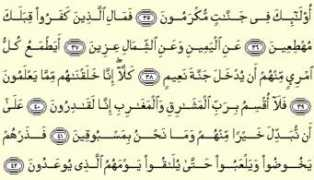 أُوْلَٰٓئِكَ فِى جَنَّٰتٍ مُّكْرَمُونَ ٣٥ فَمَالِ ٱلَّذِينَ كَفَرُوا۟ قِبَلَكَ
مُهْطِعِينَ ٣٦ عَنِ ٱلْيَمِينِ وَعَنِ ٱلشِّمَالِ عِزِينَ ٣٧ أَيَطْمَعُ كُلُّ
ٱمْرِئٍ مِّنْهُمْ أَن يُدْخَلَ جَنَّةَ نَعِيمٍ ٣٨ كَلَّآ ۖ إِنَّا خَلَقْنَٰهُم مِّمَّا يَعْلَمُونَ
٣٩ فَلَآ أُقْسِمُ بِرَبِّ ٱلْمَشَٰرِقِ وَٱلْمَغَٰرِبِ إِنَّا لَقَٰدِرُونَ ٤٠ عَلَىٰٓ
أَن نُّبَدِّلَ خَيْرًا مِّنْهُمْ وَمَا نَحْنُ بِمَسْبُوقِينَ ٤١ فَذَرْهُمْ
يَخُوضُوا۟ وَيَلْعَبُوا۟ حَتَّىٰ يُلَٰقُوا۟ يَوْمَهُمُ ٱلَّذِى يُوعَدُونَ ٤٢